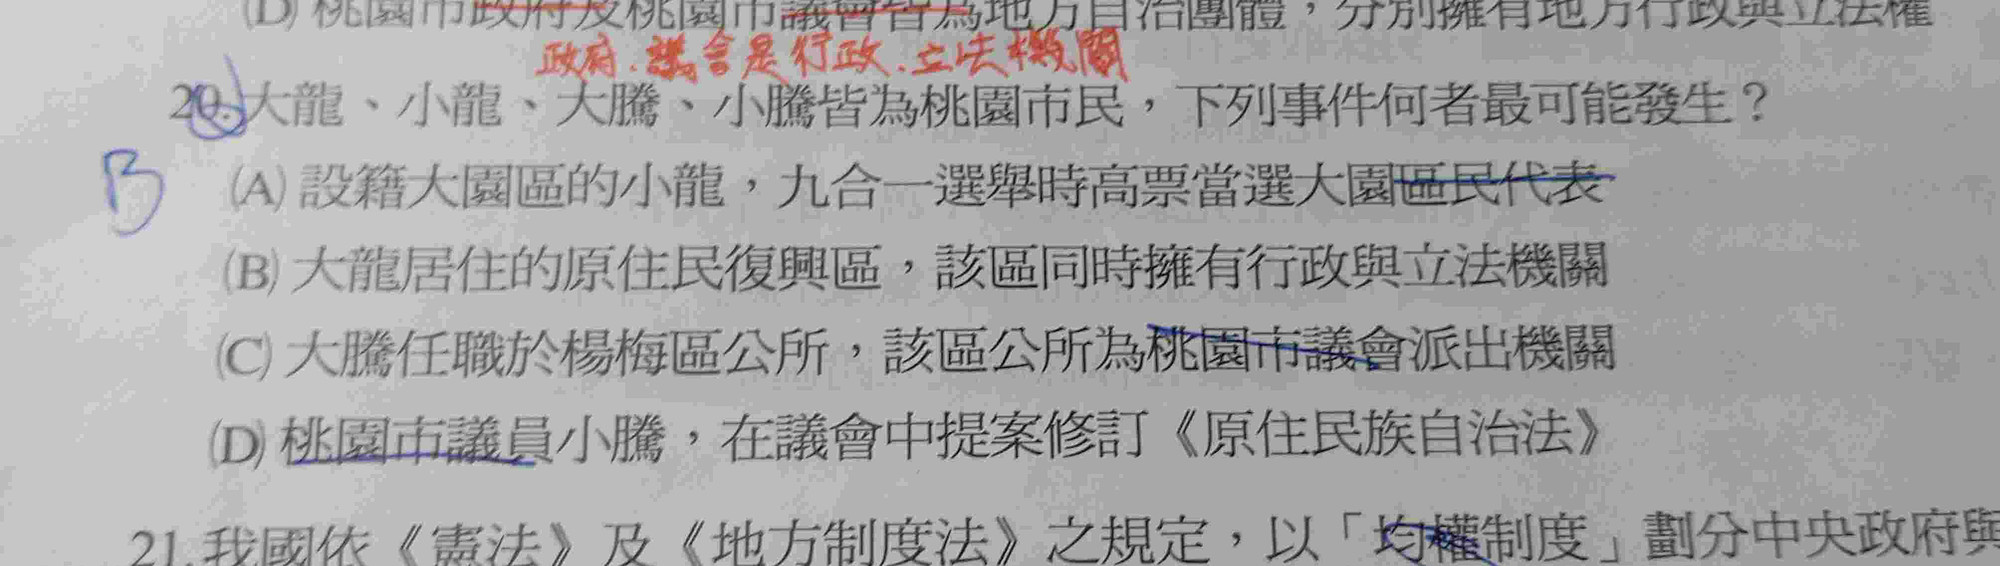 (D) 桃園市政府及桃園市議會皆為地方自治團體，分別擁有地方行政與立法權
政府.議會是行政.立法機關
20.大龍、小龍、大騰、小騰皆為桃園市民，下列事件何者最可能發生？
B
(A) 設籍大園區的小龍，九合一選舉時高票當選大園區民代表
(B) 大龍居住的原住民復興區，該區同時擁有行政與立法機關
(C) 大騰任職於楊梅區公所，該區公所為桃園市議會派出機關
(D) 桃園市議員小騰，在議會中提案修訂《原住民族自治法》
21.我國依《憲法》及《地方制度法》之規定，以「均權制度」劃分中央政府與